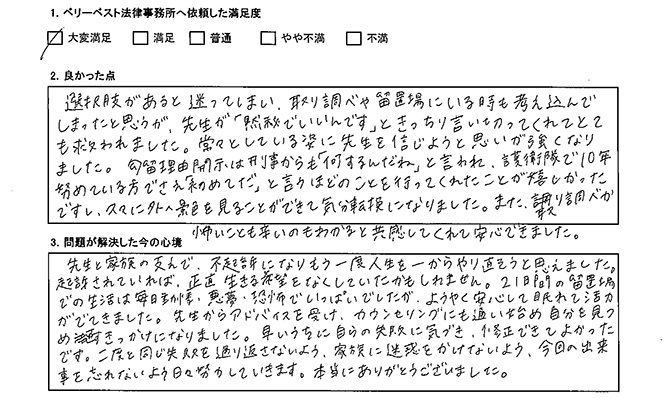 1. ベリーベスト法律事務所へ依頼した満足度
大変満足 満足 普通 やや不満 不満
2. 良かった点
選択肢があると迷ってしまい、取り調べや留置場にいる時も考え込んで
しまったと思うが、先生が「黙秘でいいんです」ときっちり言い切ってくれてとて
も救われました。常々としている姿に先生を信じようと思いが強くなり
ました。勾留理由開示は刑事からも「何するんだね」と言われ、護衛隊で10年
努めている方でさえ初めてだ」と言うほどのことを行ってくれたことが嬉しかった
ですし、久々に外へ景色を見ることができて気分転換になりました。また、取り調べが
怖いことも辛いのもわかると共感してくれて安心できました。
3. 問題が解決した今の心境
先生と家族の支えで、不起訴になりもう一度人生を一からやり直そうと思えました。
起訴されていれば、正直生きる希望をなくしていたかもしれません。21日間の留置場
での生活は毎日、悪夢・恐怖でいっぱいでしたが、ようやく安心して眠れて活力
がでてきました。先生からアドバイスを受け、カウンセリングにも通い始め自分を見つ
め直すきっかけになりました。早いうちに自らの失敗に気づき、修正できてよかった
です。二度と同じ失敗を繰り返さないよう、家族に迷惑をかけないよう、今回の出来
事を忘れないよう日々努力していきます。本当にありがとうございました。